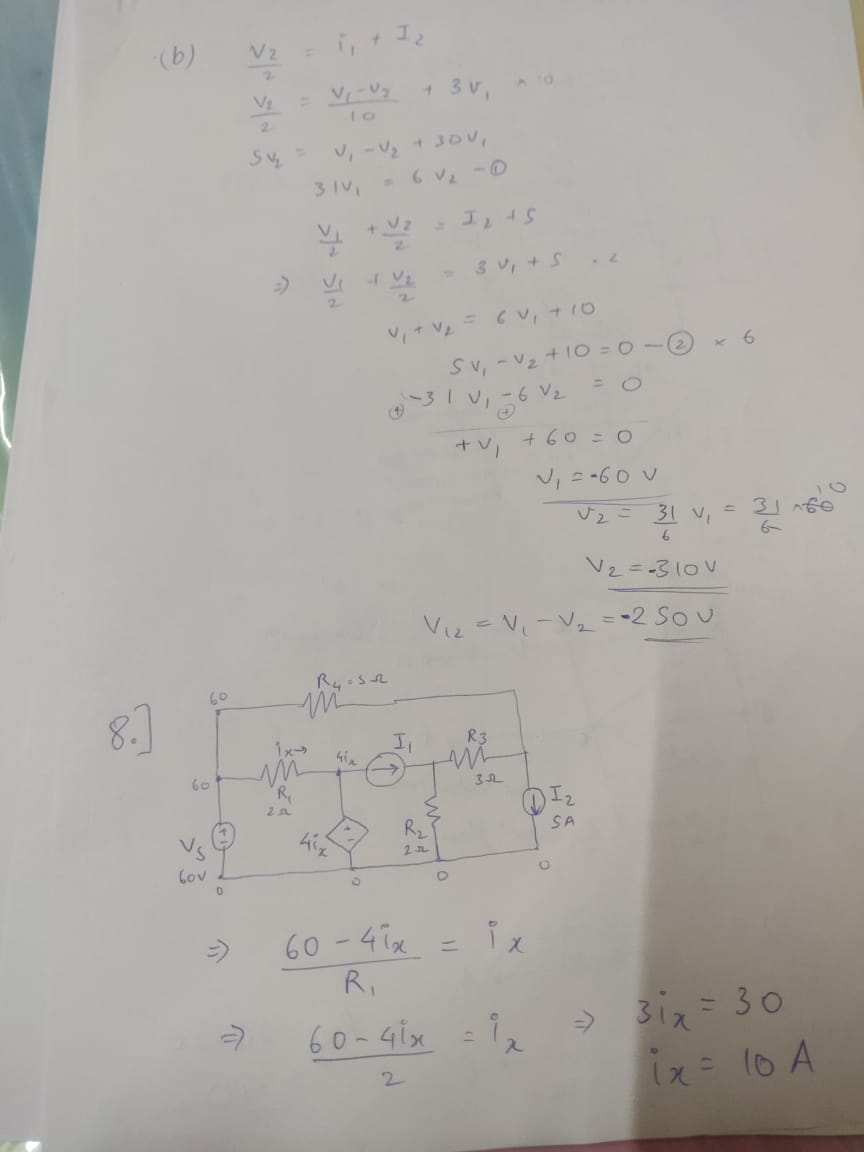 (b) V2/2 = i1 + I2
V2/2 = V1-V2/10 + 3V1 × 10
5V2 = V1 - V2 + 30V1
31V1 = 6V2 - ①
V1/2 + V2/2 = I2 + 5
⇒ V1/2 + V2/2 = 3V1 + 5 . 2
V1 + V2 = 6V1 + 10
5V1 - V2 + 10 = 0 - ② × 6
-31V1 - 6V2 = 0
(+) (+)
+V1 + 60 = 0
V1 = -60 V
V2 = 31/6 V1 = 31/6 × 60 10
V2 = -310V
V12 = V1 - V2 = -250V
8.]
60 R4 = 5Ω
ix→ 4ix I1 R3
60 R1 2Ω 3Ω
I2 5A
Vs 60V + - 4ix + - R2 2Ω
0 0 0 0
⇒ 60 - 4ix/R1 = ix
⇒ 60 - 4ix/2 = ix ⇒ 3ix = 30
ix = 10 A